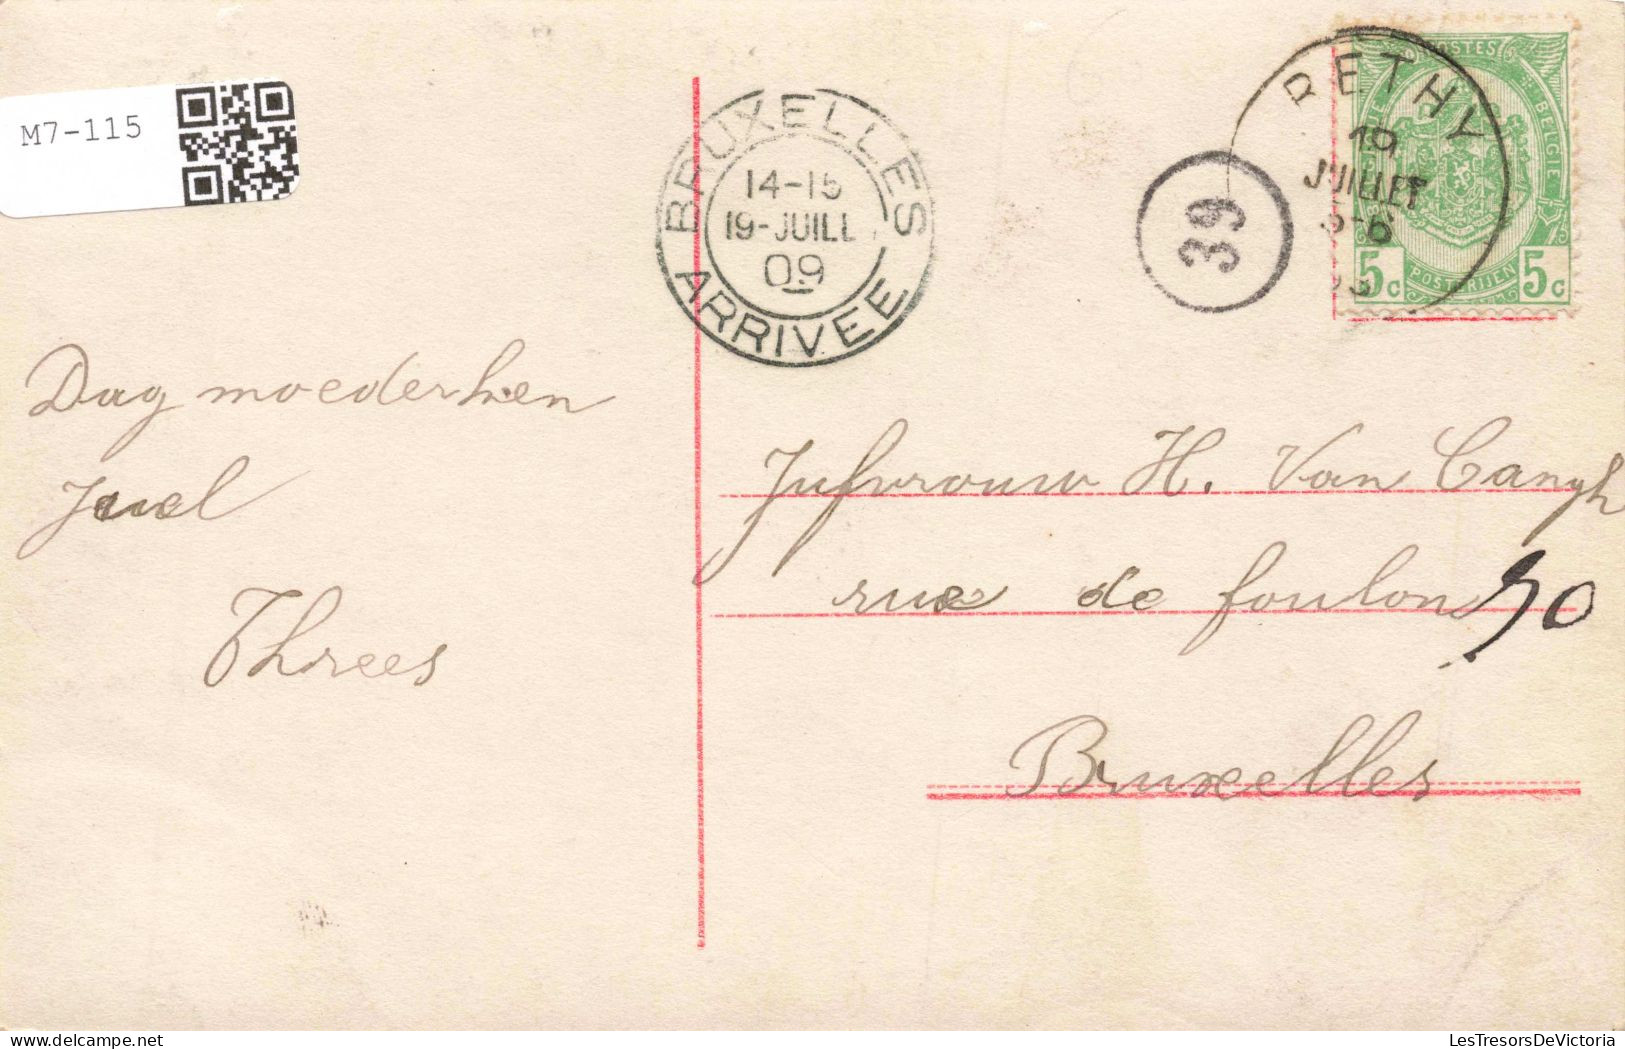 M7-115
BRUXELLES
14-15
19-JUILL
09
ARRIVEE
39
RETHY
19
JUILLET
5-6
POSTES
BELGIE
POSTERIJEN
5c 5c
Dag moederken
Threes
Jufvrouw H. Van Cangh
rue de foulon 50
Bruxelles
LesTresorsDeVictoria